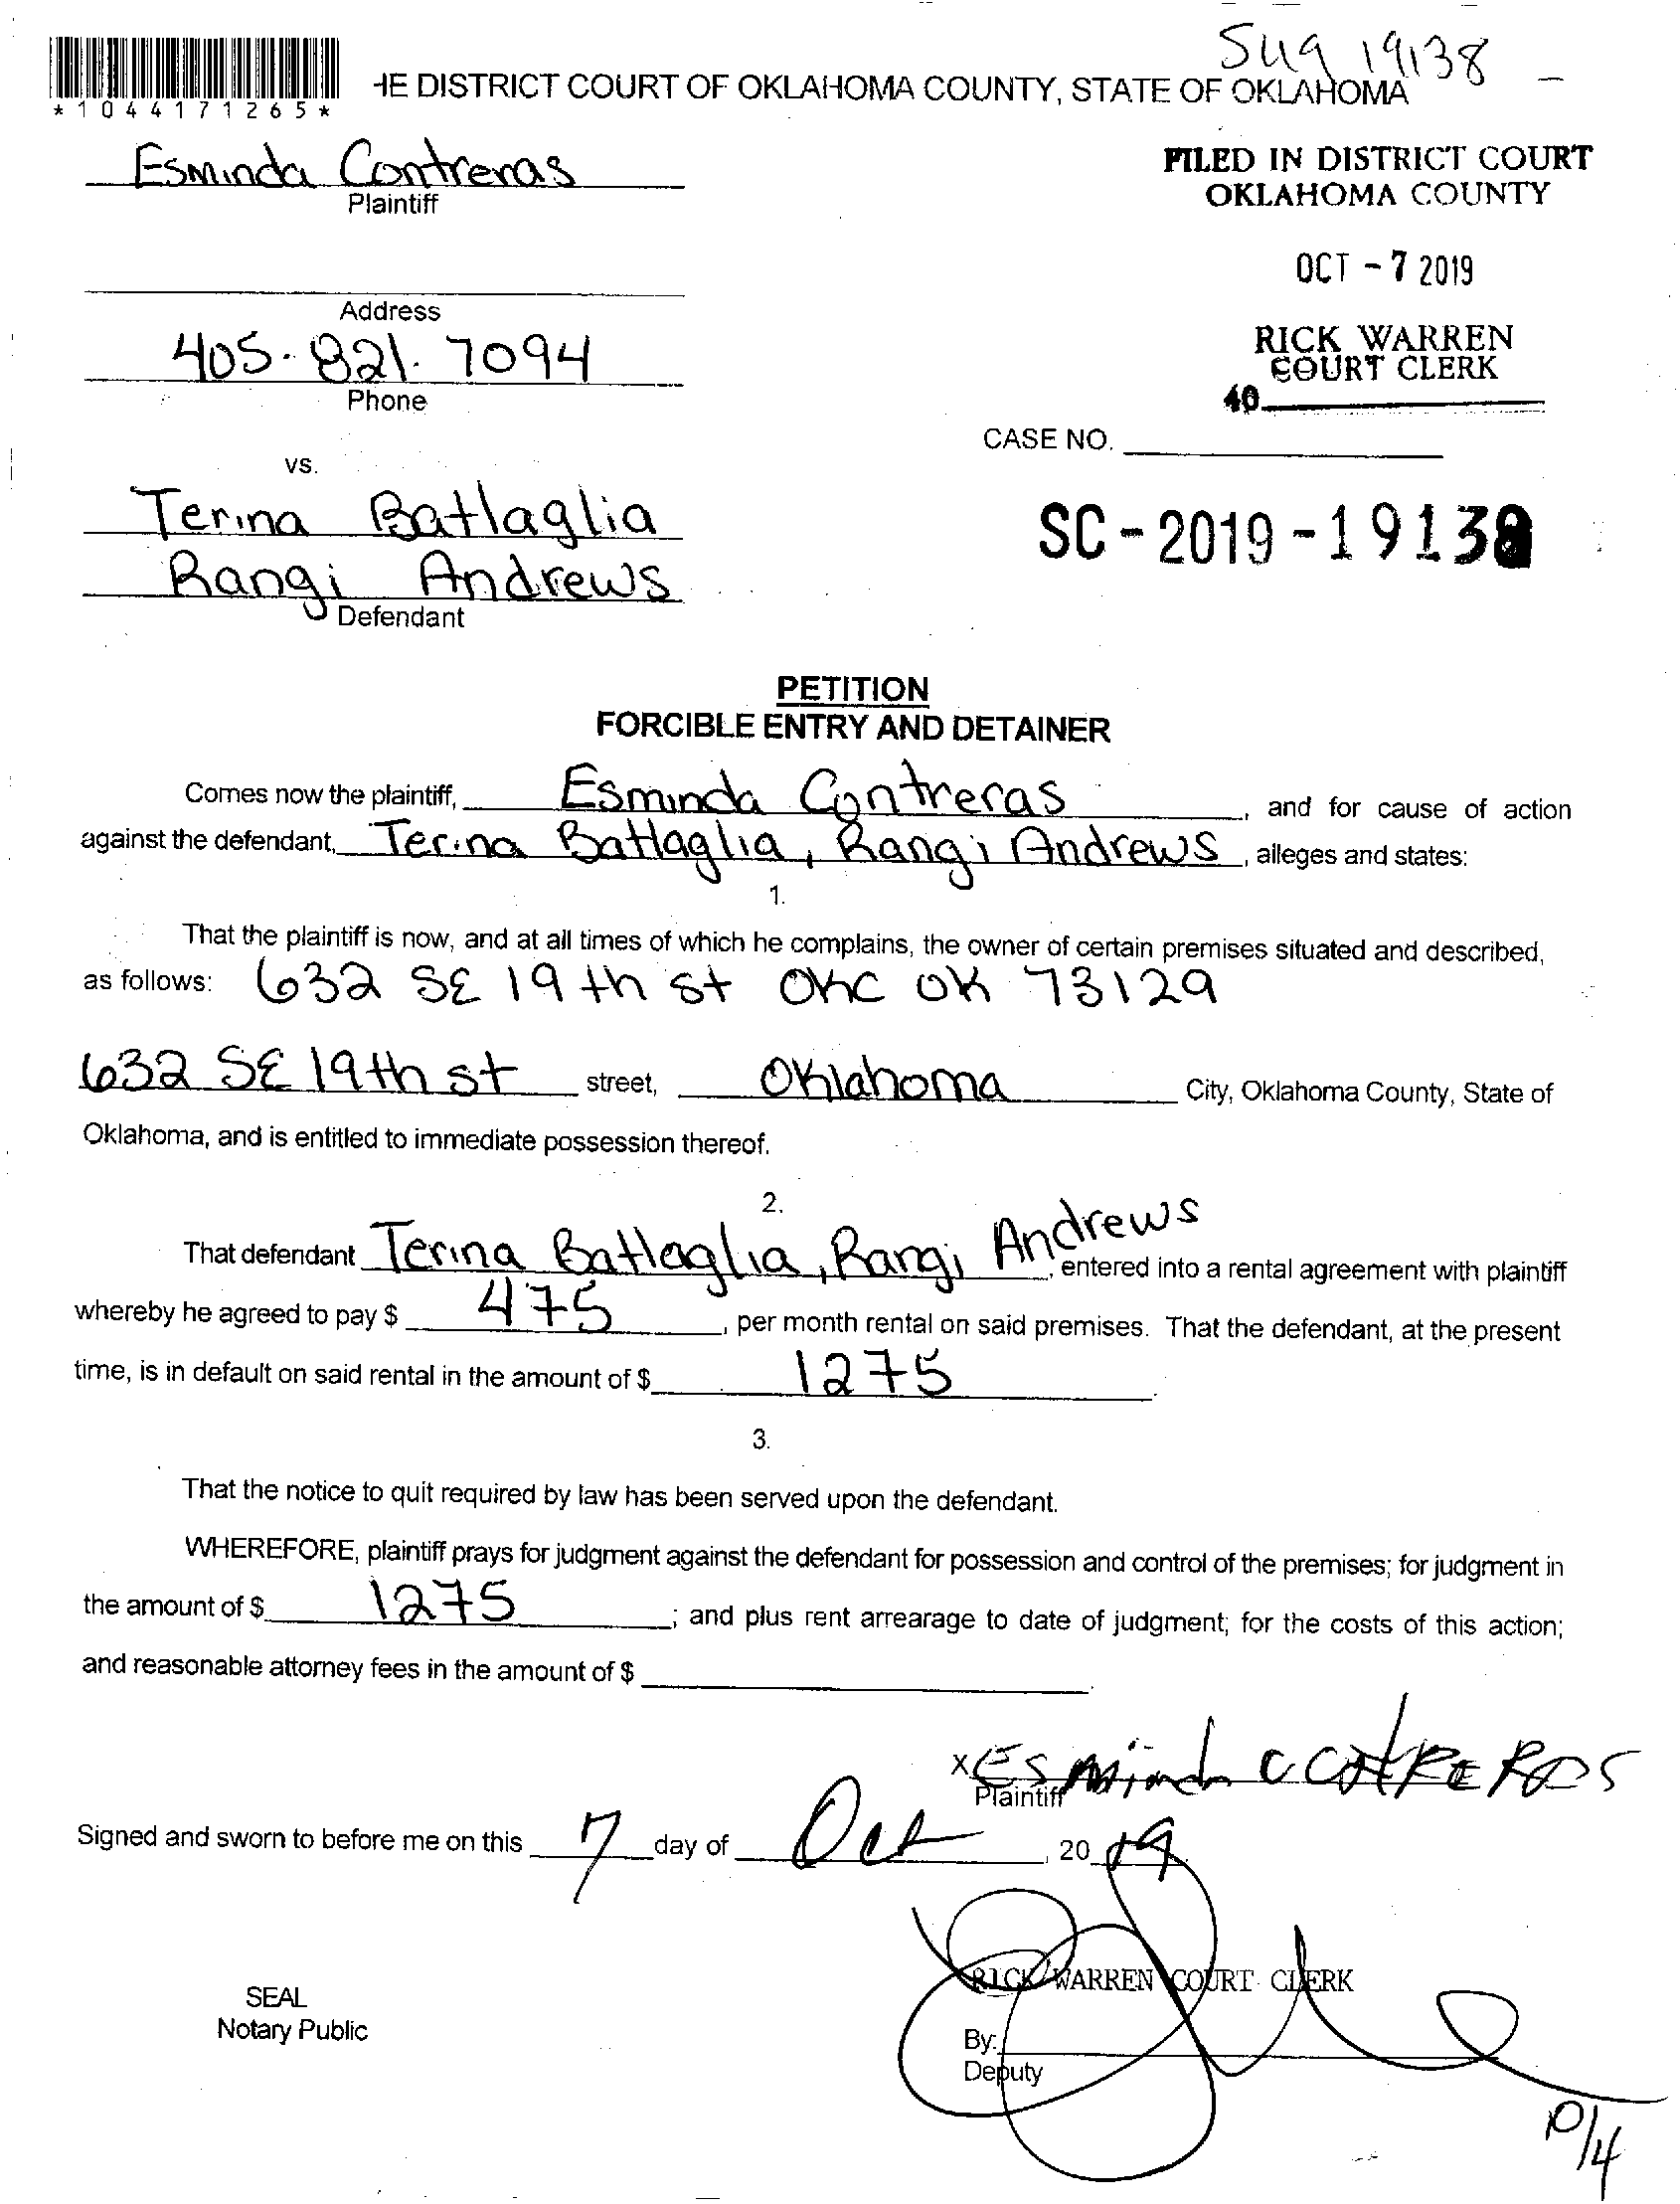 Sug 19138
HE DISTRICT COURT OF OKLAHOMA COUNTY, STATE OF OKLAHOMA
*1044171265*
Esminda Contreras
Plaintiff
FILED IN DISTRICT COURT
OKLAHOMA COUNTY
OCT - 7 2019
RICK WARREN
COURT CLERK
40
Address
405-821-7094
Phone
CASE NO.
vs.
Terina Battaglia
Rangi Andrews
Defendant
SC-2019-19138
PETITION
FORCIBLE ENTRY AND DETAINER
Comes now the plaintiff, Esminda Contreras, and for cause of action
against the defendant, Terina Battaglia, Rangi Andrews, alleges and states:
1.
That the plaintiff is now, and at all times of which he complains, the owner of certain premises situated and described,
as follows: 632 SE 19th st OKC OK 73129
632 SE 19th st street, Oklahoma City, Oklahoma County, State of
Oklahoma, and is entitled to immediate possession thereof.
2.
That defendant Terina Battaglia, Rangi Andrews, entered into a rental agreement with plaintiff
whereby he agreed to pay $ 475, per month rental on said premises. That the defendant, at the present
time, is in default on said rental in the amount of $ 1275.
3.
That the notice to quit required by law has been served upon the defendant.
WHEREFORE, plaintiff prays for judgment against the defendant for possession and control of the premises; for judgment in
the amount of $ 1275; and plus rent arrearage to date of judgment; for the costs of this action;
and reasonable attorney fees in the amount of $ .
x Esminda CONTRERAS
Plaintiff
Signed and sworn to before me on this 7 day of Oct, 2019
RICK WARREN COURT CLERK
SEAL
Notary Public
By:
Deputy